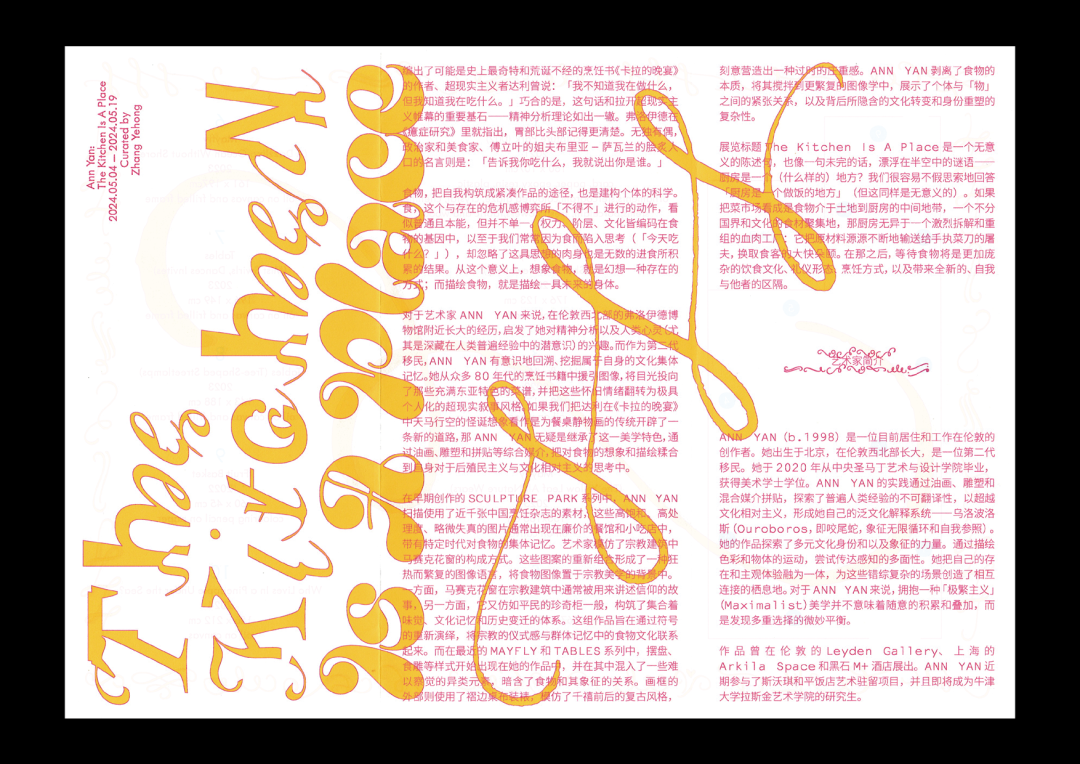 Ann Yan:
The Kitchen Is A Place
2024.05.04 — 2024.05.19
Curated by
Zhang Yehong
The
Kitchen
Is A Place
出了可能是史上最奇特和荒诞不经的烹饪书《卡拉的晚宴》
的作者、超现实主义者达利曾说：「我不知道我在做什么，
但我知道我在吃什么。」巧合的是，这句话和拉开超现实主
义帷幕的重要基石——精神分析理论如出一辙。弗洛伊德在
《癔症研究》里就指出，胃部比头部记得更清楚。无独有偶，
政治家和美食家、傅立叶的姐夫布里亚–萨瓦兰的脍炙人
口的名言则是：「告诉我你吃什么，我就说出你是谁。」
食物，把自我构筑成紧凑作品的途径，也是建构个体的科学。
食，这个与存在的危机感博弈所「不得不」进行的动作，看
似普通且本能，但并不单一。权力、阶层、文化皆编码在食
物的基因中，以至于我们常常因为食而陷入思考（「今天吃
什么？」），却忽略了这具思想的肉身也是无数的进食所积
累的结果。从这个意义上，想象食物，就是幻想一种存在的
方式；而描绘食物，就是描绘一具未来的身体。
对于艺术家 ANN YAN 来说，在伦敦西北部的弗洛伊德博
物馆附近长大的经历，启发了她对精神分析以及人类心灵（尤
其是深藏在人类普遍经验中的潜意识）的兴趣。而作为第二代
移民，ANN YAN 有意识地回溯、挖掘属于自身的文化集体
记忆。她从众多 80 年代的烹饪书籍中援引图像，将目光投向
了那些充满东亚特色的菜谱，并把这些怀旧情绪翻转为极具
个人化的超现实叙事风格。如果我们把达利在《卡拉的晚宴》
中天马行空的怪诞想象看作是为餐桌静物画的传统开辟了一
条新的道路，那 ANN YAN 无疑是继承了这一美学特色，通
过油画、雕塑和拼贴等综合媒介，把对食物的想象和描绘糅合
到自身对于后殖民主义与文化相对主义的思考中。
在早期创作的 SCULPTURE PARK 系列中，ANN YAN
扫描使用了近千张中国烹饪杂志的素材，这些高饱和、高处
理度、略微失真的图片通常出现在廉价的餐馆和小吃店中，
带有特定时代对食物的集体记忆。艺术家模仿了宗教建筑中
马赛克花窗的构成方式。这些图案的重新组合形成了一种狂
热而繁复的图像语言，将食物图像置于宗教美学的背景中。
一方面，马赛克花窗在宗教建筑中通常被用来讲述信仰的故
事，另一方面，它又仿如平民的珍奇柜一般，构筑了集合着
味觉、文化记忆和历史变迁的体系。这组作品旨在通过符号
的重新演绎，将宗教的仪式感与群体记忆中的食物文化联系
起来。而在最近的 MAYFLY 和 TABLES 系列中，摆盘、
食雕等样式开始出现在她的作品中，并在其中混入了一些难
以察觉的异类元素，暗含了食物和其象征的关系。画框的
外部则使用了褶边桌布装裱，模仿了千禧前后的复古风格，
刻意营造出一种过时的庄重感。ANN YAN 剥离了食物的
本质，将其搅拌到更繁复的图像学中，展示了个体与「物」
之间的紧张关系，以及背后所隐含的文化转变和身份重塑的
复杂性。
展览标题 The Kitchen Is A Place 是一个无意
义的陈述句，也像一句未完的话，漂浮在半空中的谜语——
厨房是一个（什么样的）地方？我们很容易不假思索地回答
「厨房是一个做饭的地方」（但这同样是无意义的）。如果
把菜市场看成是食物介于土地到厨房的中间地带，一个不分
国界和文化的食材聚集地，那厨房无异于一个激烈拆解和重
组的血肉工厂：它把原材料源源不断地输送给手执菜刀的屠
夫，换取食客的大快朵颐。在那之后，等待食物将是更加庞
杂的饮食文化、礼仪形态、烹饪方式，以及带来全新的、自我
与他者的区隔。
艺术家简介
ANN YAN（b.1998）是一位目前居住和工作在伦敦的
创作者。她出生于北京，在伦敦西北部长大，是一位第二代
移民。她于 2020 年从中央圣马丁艺术与设计学院毕业，
获得美术学士学位。ANN YAN 的实践通过油画、雕塑和
混合媒介拼贴，探索了普遍人类经验的不可翻译性，以超越
文化相对主义，形成她自己的泛文化解释系统——乌洛波洛
斯（Ouroboros，即咬尾蛇，象征无限循环和自我参照）。
她的作品探索了多元文化身份和以及象征的力量。通过描绘
色彩和物体的运动，尝试传达感知的多面性。她把自己的存
在和主观体验融为一体，为这些错综复杂的场景创造了相互
连接的栖息地。对于 ANN YAN 来说，拥抱一种「极繁主义」
(Maximalist) 美学并不意味着随意的积累和叠加，而
是发现多重选择的微妙平衡。
作品曾在伦敦的 Leyden Gallery、上海的
Arkila Space 和黑石 M+ 酒店展出。ANN YAN 近
期参与了斯沃琪和平饭店艺术驻留项目，并且即将成为牛津
大学拉斯金艺术学院的研究生。